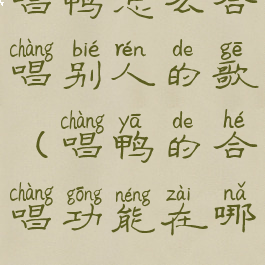 唱鸭怎么合
chàng bié rén de gē
唱别人的歌
chàng yā de hé
(唱鸭的合
chàng gōng néng zài nǎ
唱功能在哪